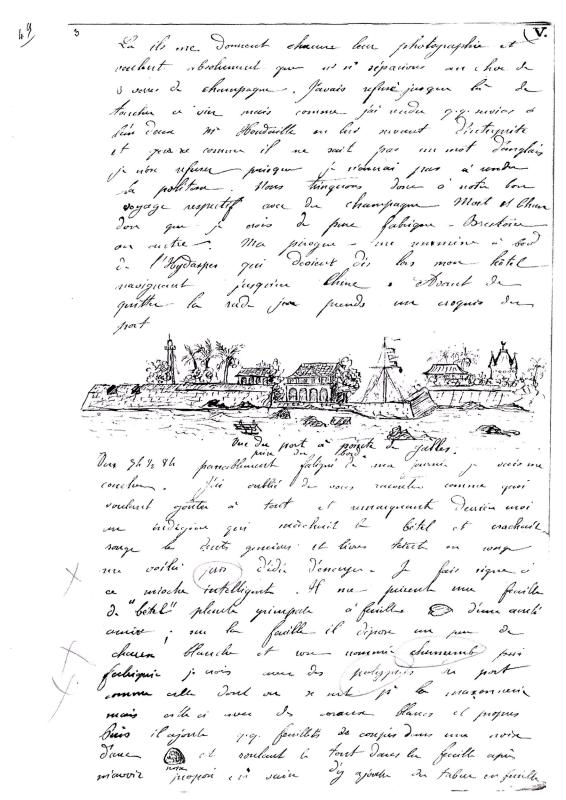 49
3
V.
Là ils me donnent chacun leur photographie et
veulent absolument que nous nous séparions au choc de
3 verres de champagne. J'avais refusé jusque là de
toucher à vin mais comme j'ai rendu q.q. services à
l'un d'eux Mr en lui servant d'interprète
et que comme il ne sait pas un mot d'anglais
je n'ose refuser puisque je n'aurai pas à rendre
la politesse. Nous trinquons donc à notre bon
voyage respectif avec du champagne
dont que je crois de pure fabrique
ou autre. Ma pirogue me ramène à bord
de l'Hydaspes qui devient dès lors mon hôtel
naviguant jusqu'en Chine. Avant de
quitter la rade je prends un croquis du
port
Vue du port à pointe de Galles.
prise du bord
Vers 7h ½ 8h passablement fatigué de ma journée je vais me
coucher. J'ai oublié de vous raconter comme quoi
voulant goûter à tout et remarquant derrière moi
un indigène qui mâchait le bétel et crachait
rouge les dents gencives et lèvres en rouge
me voilà pris d'idée d'essayer. Je fais signe à
ce mioche intelligent. Il me prend une feuille
de "bétel" plante grimpante à feuille d'une âcreté
; sur la feuille il dépose un peu de
chaux blanche et nommée chunemb
fabriquée je crois avec des polypiers du port
comme celle dont on se sert pr la maçonnerie
mais celle ci avec des coraux blancs et propres
Puis il ajoute q.q. feuillets coupés dans une noix
d'arec et roulant le tout dans la feuille après
noix
m'avoir proposé en vain d'y ajouter du tabac en feuille